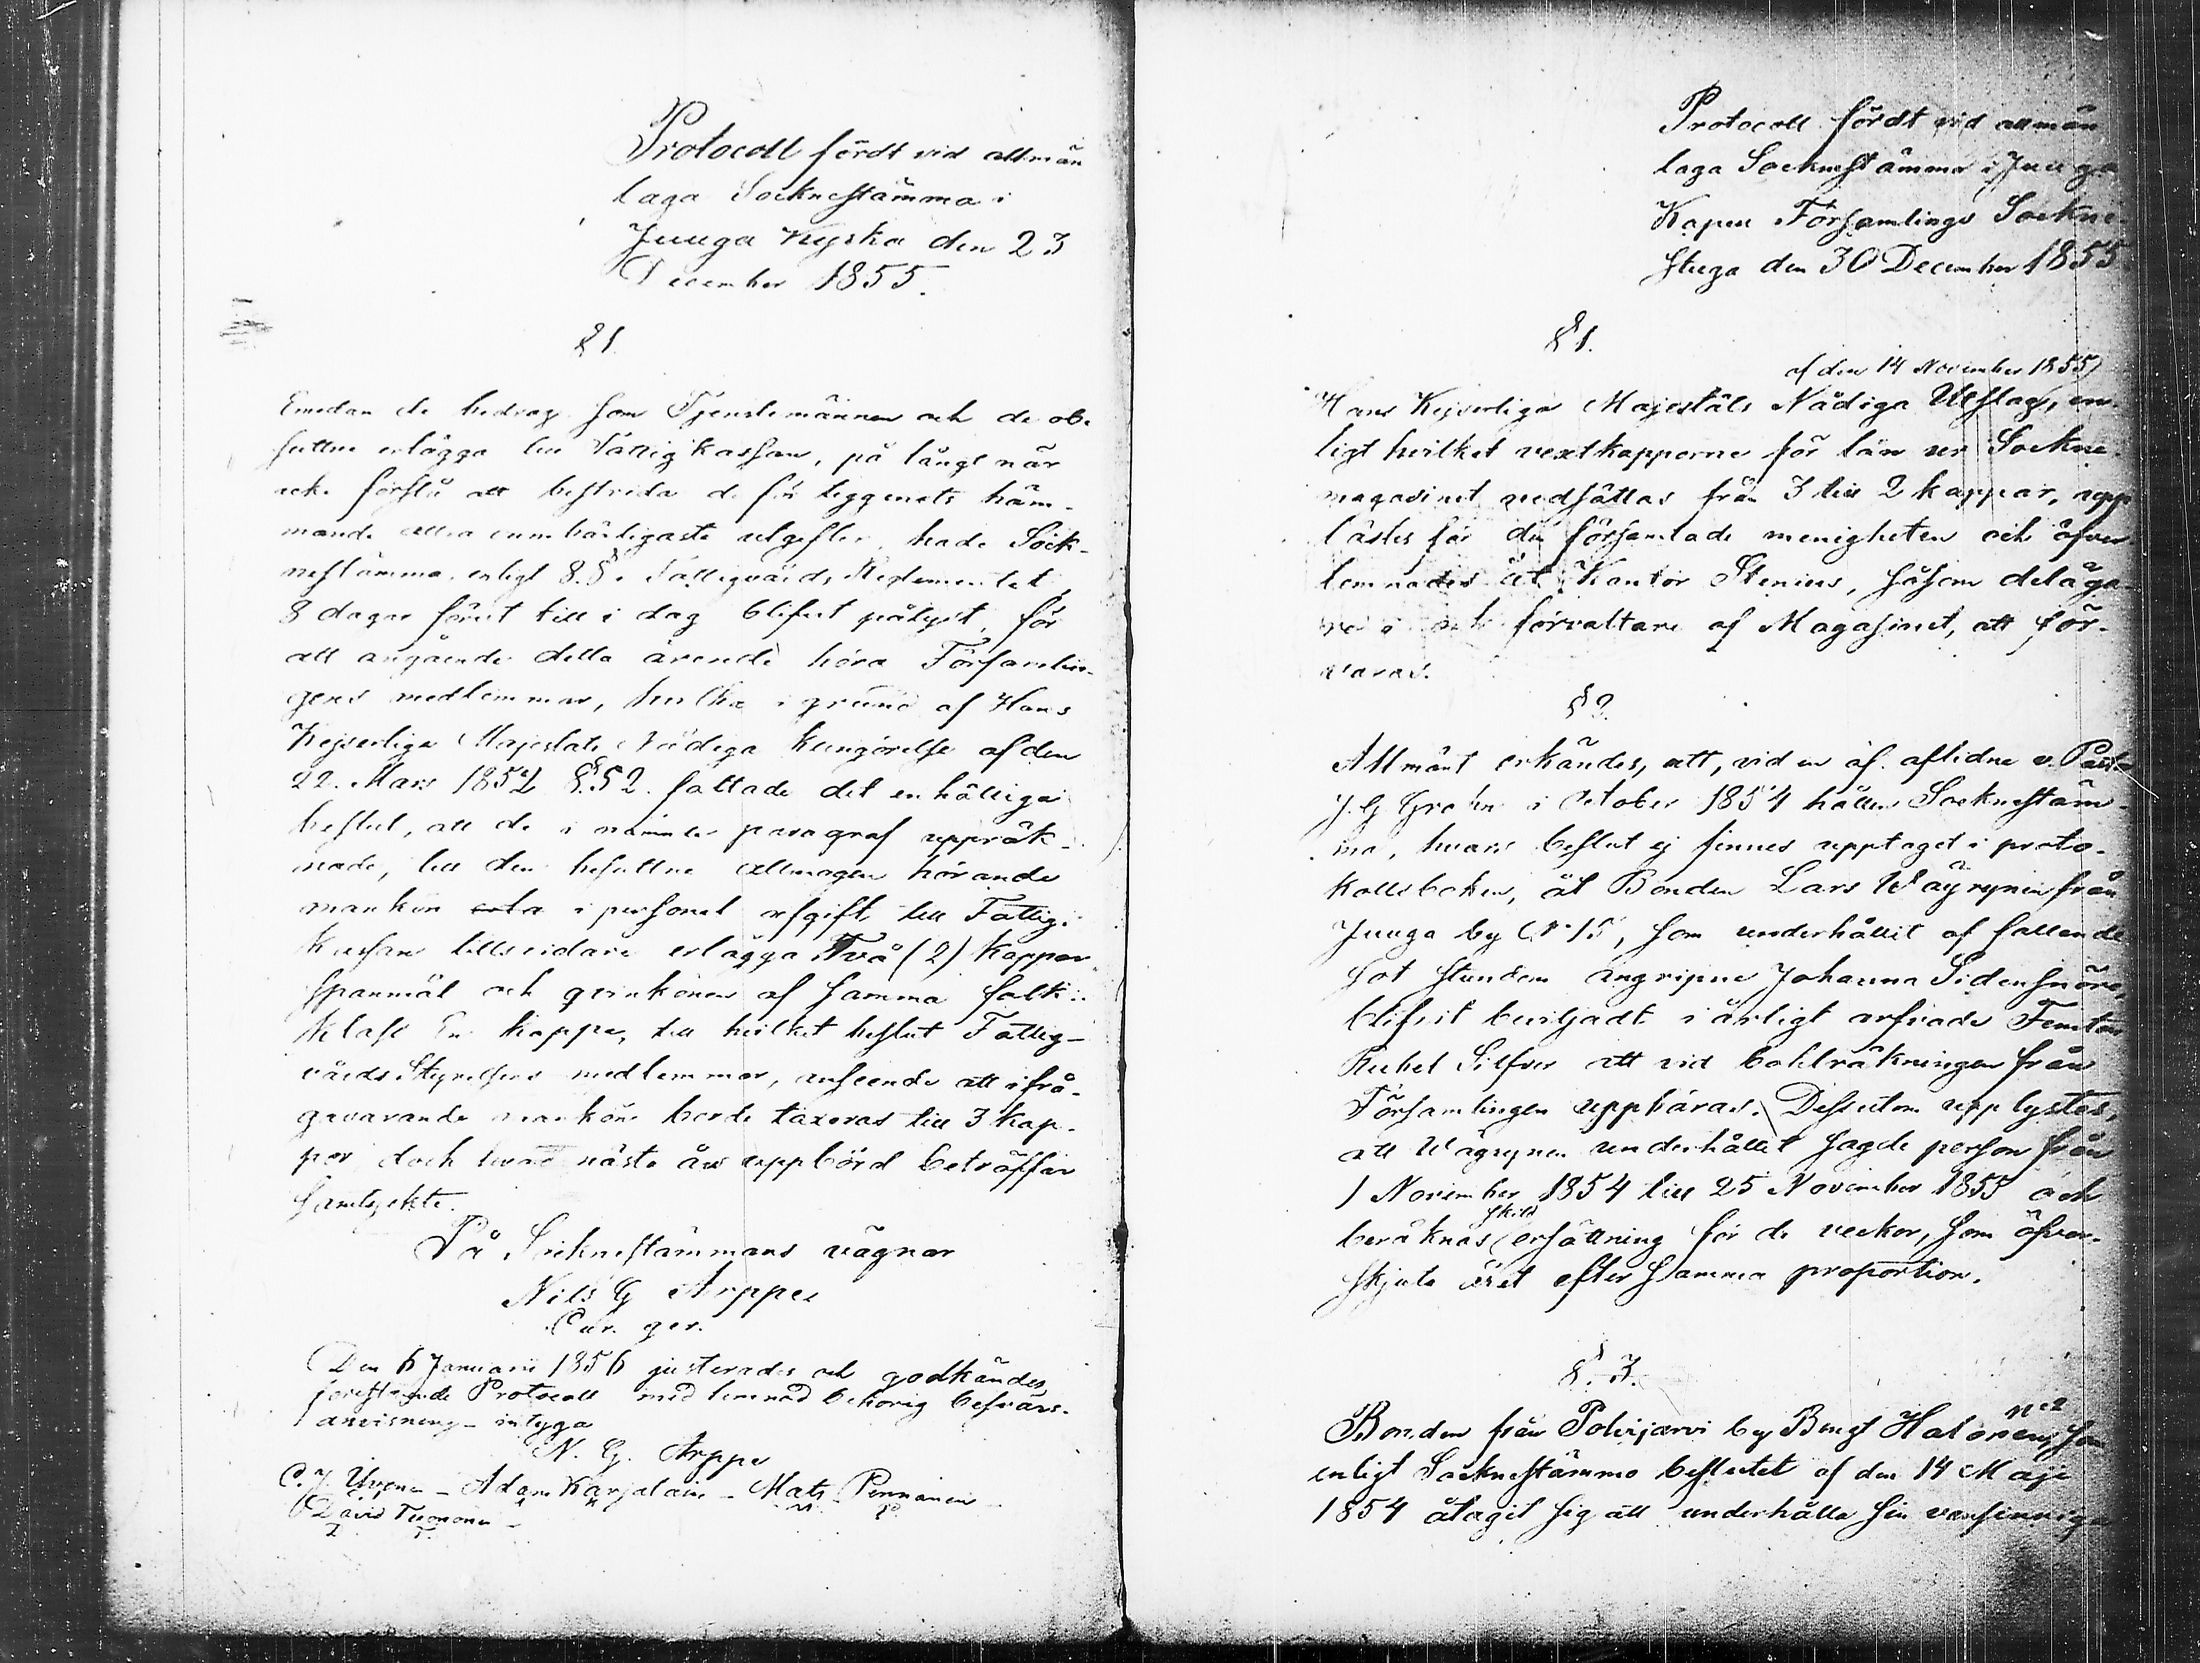 Protocoll fördt vid allmän
laga Socknestämma i
Juuga Kyrka den 23
December 1855.
§ 1.
Emedan de bidrag som Tjenstemännen och de ob-
suttne erlägga till Fattigkassan, på långt när
icke förslå att bestrida de för tiggeriets häm-
mande allra oumbärligaste utgifter, hade Sock-
nestämma, enligt 8. § i Fattigvårds Reglementet,
8 dagar förut till i dag blifvit pålyst, för
att angående detta ärende höra Församlin-
gens medlemmar, hvilka i grund af Hans
Kejserliga Majestäts Nådiga kungörelse af den
22. Mars 1852 §. 52. fattade det enhälliga
beslut, att de i nämnde paragraf uppräk-
nade, till den besuttne allmogen hörande
mankön i personel afgift till Fattig-
kassan tillsvidare erlägga Två (2) Kappar
spanmål och qvinkönen af samma folk-
klass En kappe, till hvilket beslut Fattig-
vårds Styrelsens medlemmar, anseende att ifrå-
gavarande mankön borde taxeras till 3 kap-
par doch hvad nästa års uppbörd beträffar
samtyckte.
På Socknestämmans vägnar
Nils G Arppe
Cur. ger.
Den 6 Januarii 1856 justerades och godkändes
förestående Protocoll med lemnad behörig besvärs-
anvisning - intyga
N. G. Arppe
C. J. - Adam Karjalain - Mats Pennanen
David Tuononen -
Protocoll fördt vid allmän
laga Socknestämma i Juuga
Kapell Församlings Sockne-
stuga den 30 December 1855
§ 1.
af den 14 November 1855
Hans Kejserliga Majestäts Nådiga Utslag, en-
ligt hvilket vextkapporne för lån ur Sockne-
magasinet nedsättas från 3 till 2 kappar, upp
lästes för den församlade menigheten och öfver-
lemnades åt Kantor Stenius, såsom delåga
re i och förvaltare af Magasinet, att för-
varas.
§ 2.
Allmänt erkändes, att, vid en af aflidne v. Pastor
J. G i October 1854 hållen Socknestäm-
ma, hvars beslut ej finnes upptaget i proto-
kollsboken, åt Bonden Lars Wäyrynen från
Juuga by N:o 15, som underhållit af fallande
sot stundom angripne Johanna Sidensnöre,
blifvit beviljadt i årligt arfvode Femton
Rubel Silfver att vid bohlräkningen från
Församlingen uppbäras. Dessutom upplystes,
att Wäyrynen underhållit sagde person från
1 November 1854 till 25 November 1855 och
skild
beräknas ersättning för de veckor, som öfver-
skjuta året efter samma proportion.
§. 3.
N:o 2
Bonden från Polvijärvi by Bengt Halonen, som
enligt Socknestämmo beslutet af den 14 Maji
1854 åtagit sig att underhålla sin vansinniga